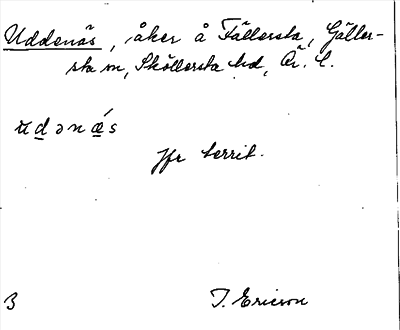 Uddenäs, åker å Fällersta, Gäller-
sta sn, Sköllersta hd, Ör. l.
ʉd̲ənæ̲´s
Jfr territ.
B T. Ericson